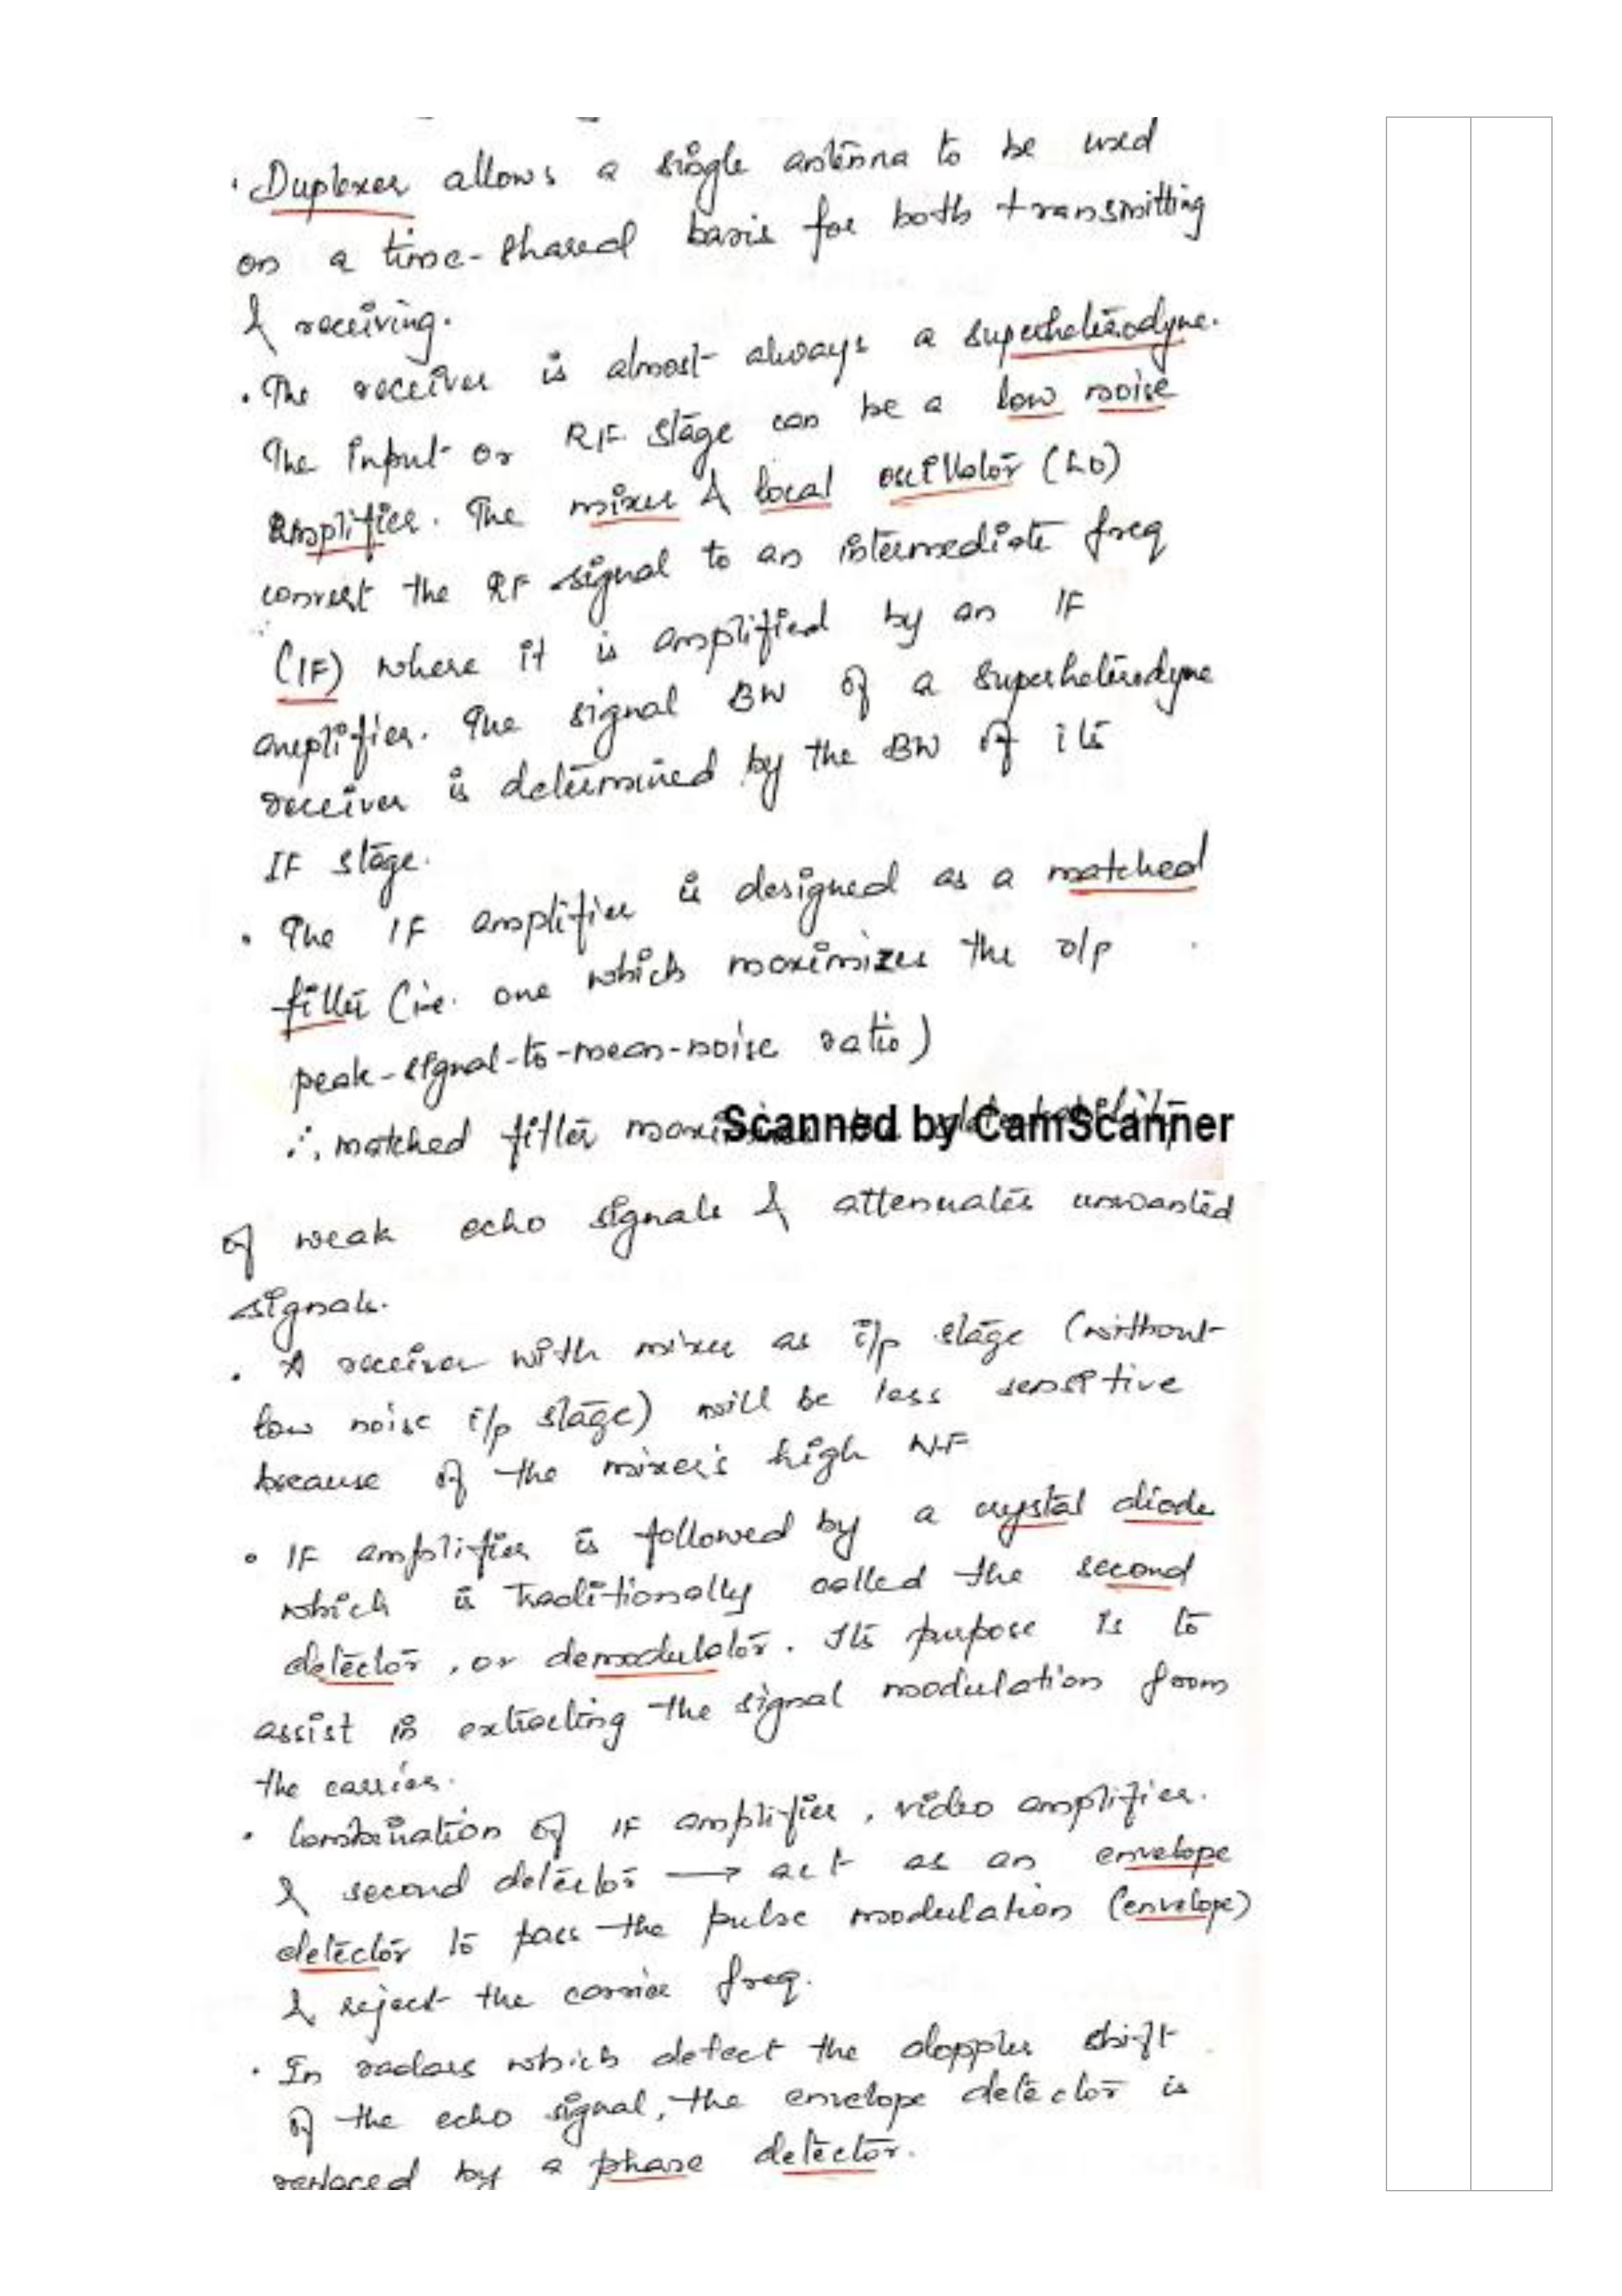 · Duplexer allows a single antenna to be used
on a time-shared basis for both transmitting
& receiving.
· The receiver is almost always a superheterodyne.
The input or RF stage can be a low noise
amplifier. The mixer & local oscillator (LO)
convert the RF signal to an intermediate freq
(IF) where it is amplified by an IF
amplifier. The signal BW of a superheterodyne
receiver is determined by the BW of its
IF stage.
· The IF amplifier is designed as a matched
filter (i.e. one which maximizes the o/p
peak-signal-to-mean-noise ratio)
∴ matched filter
Scanned by CamScanner
of weak echo signals & attenuates unwanted
signals.
· A receiver with mixer as i/p stage (without
low noise i/p stage) will be less sensitive
because of the mixer's high NF
· IF amplifier is followed by a crystal diode
which is traditionally called the second
detector, or demodulator. Its purpose is to
assist in extracting the signal modulation from
the carrier.
· Combination of IF amplifier, video amplifier.
& second detector → act as an envelope
detector to pass the pulse modulation (envelope)
& reject the carrier freq.
· In radars which detect the doppler shift
of the echo signal, the envelope detector is
replaced by a phase detector.